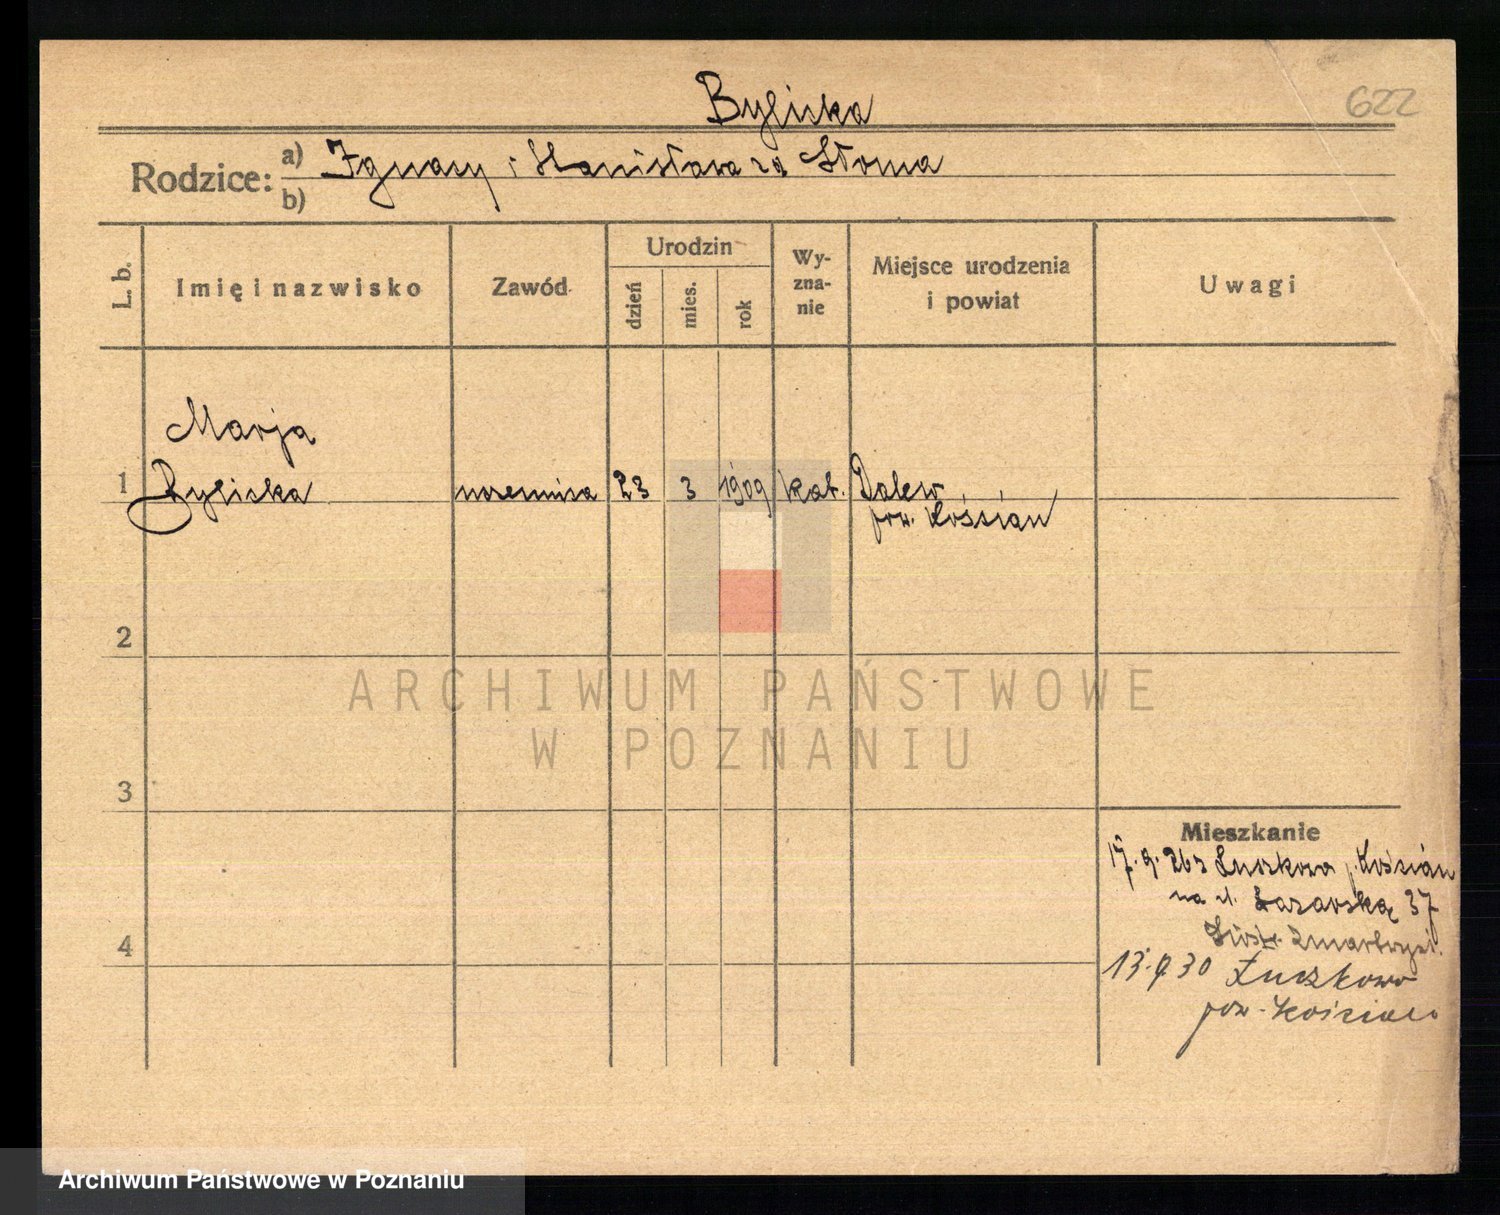 622
Byliska
Rodzice: a) Ignacy i Stanisława zd Słoma
b)
L. b.
Imię i nazwisko
Zawód
Urodzin
dzień
mies.
rok
Wy-
zna-
nie
Miejsce urodzenia
i powiat
Uwagi
Marja
1 Byliska uczennica 23 3 1909 kat. Dalew
pow. Kościan
2
ARCHIWUM PAŃSTWOWE
W POZNANIU
3
Mieszkanie
17.9.26 z p. Kościan
na ul. 37
4
13.9.30
pow. Kościan
Archiwum Państwowe w Poznaniu